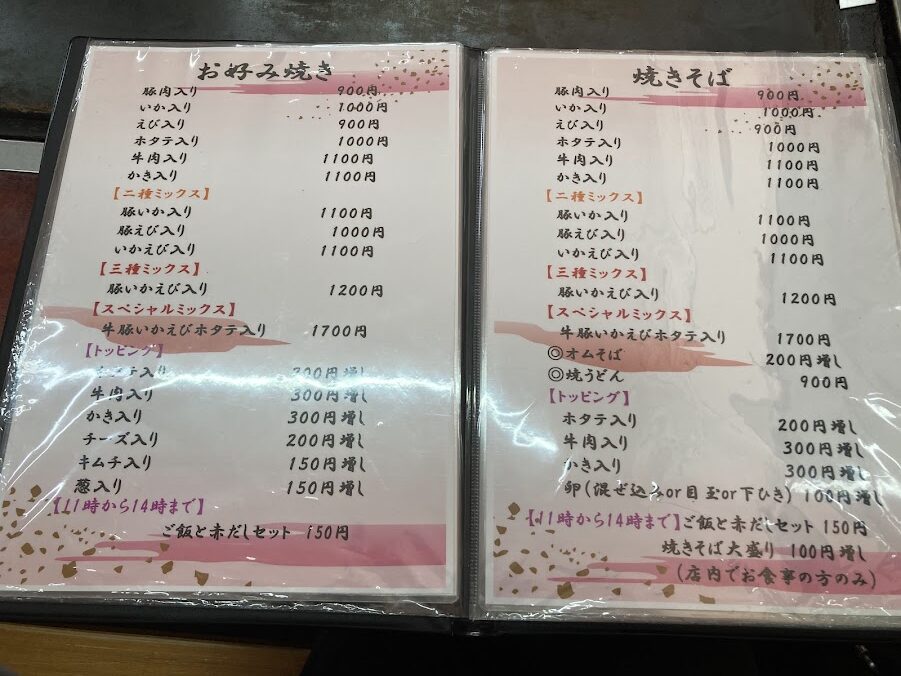 お好み焼き
豚肉入り 900円
いか入り 1000円
えび入り 900円
ホタテ入り 1000円
牛肉入り 1100円
かき入り 1100円
【二種ミックス】
豚いか入り 1100円
豚えび入り 1000円
いかえび入り 1100円
【三種ミックス】
豚いかえび入り 1200円
【スペシャルミックス】
牛豚いかえびホタテ入り 1700円
【トッピング】
ホタテ入り 200円増し
牛肉入り 300円増し
かき入り 300円増し
チーズ入り 200円増し
キムチ入り 150円増し
葱入り 150円増し
【11時から14時まで】
ご飯と赤だしセット 150円
焼きそば
豚肉入り 900円
いか入り 1000円
えび入り 900円
ホタテ入り 1000円
牛肉入り 1100円
かき入り 1100円
【二種ミックス】
豚いか入り 1100円
豚えび入り 1000円
いかえび入り 1100円
【三種ミックス】
豚いかえび入り 1200円
【スペシャルミックス】
牛豚いかえびホタテ入り 1700円
◎オムそば 200円増し
◎焼うどん 900円
【トッピング】
ホタテ入り 200円増し
牛肉入り 300円増し
かき入り 300円増し
卵(混ぜ込みor目玉or下ひき) 100円増し
【11時から14時まで】ご飯と赤だしセット 150円
焼きそば大盛り 100円増し
(店内でお食事の方のみ)